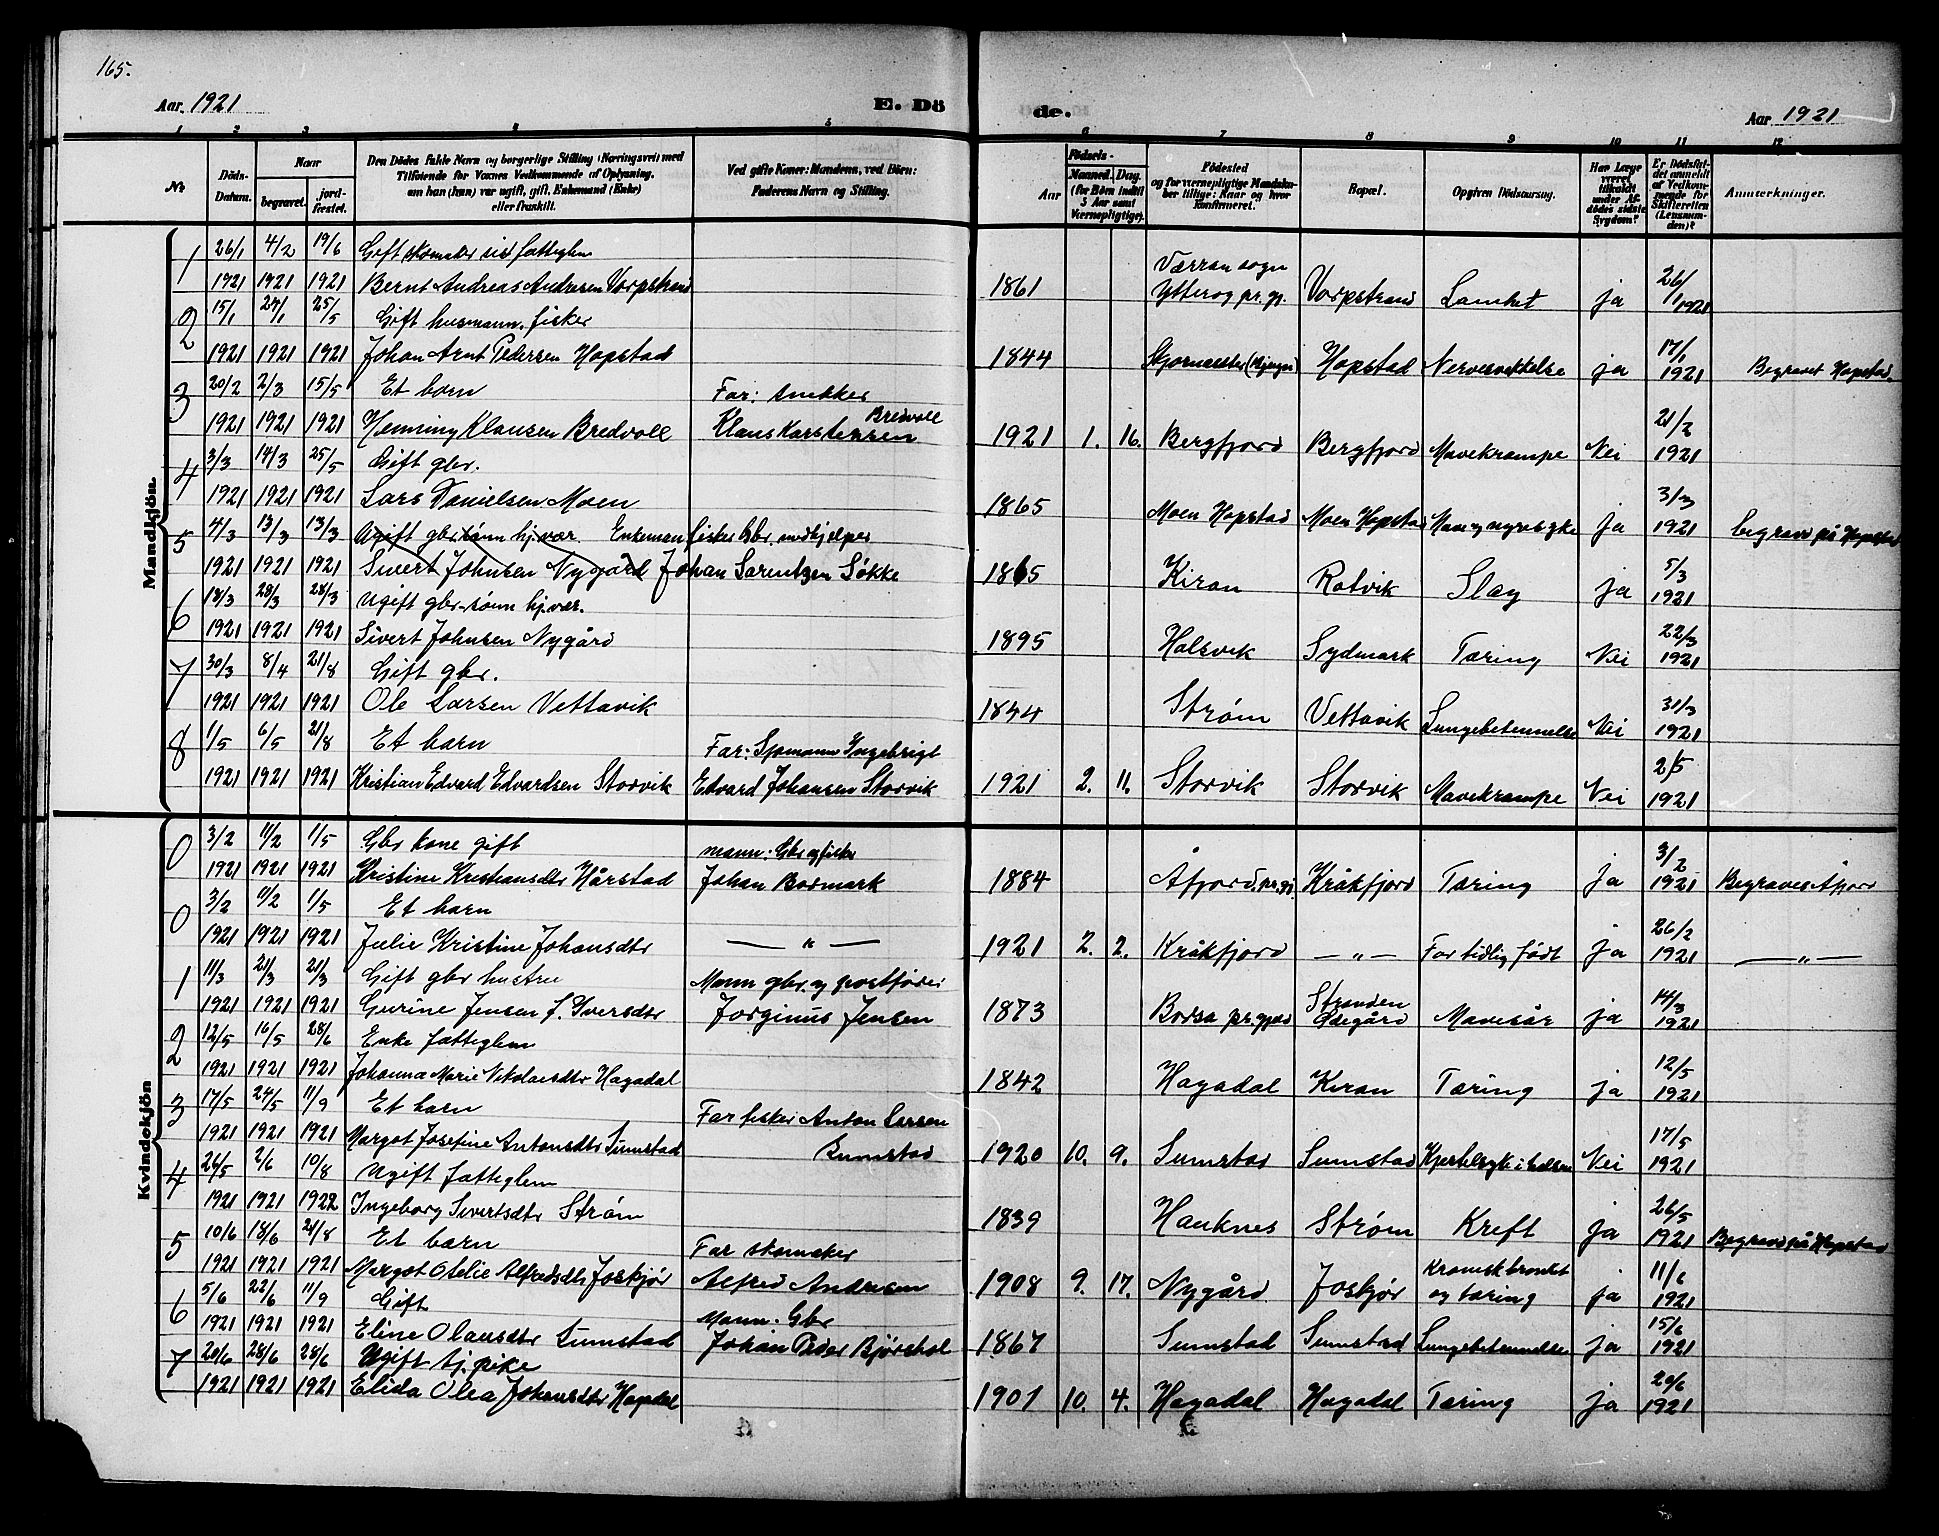 165.
Aar. 1921 E. Dö
de. Aar 1921
1 2 3 4 5 6 7 8 9 10 11 12
№ Döds-Datum. Naar begravet. jord-fæstet. Den Dödes fulde Navn og borgerlige Stilling (Næringsvei) med Tilföiende for Voxnes Vedkommende af Oplysning, om han (hun) var ugift, gift, Enkemand (Enke) eller fraskilt. Ved gifte Koner: Mandens, ved Börn: Faderens Navn og Stilling.
Födsels- Aar Maaned. Dag. (for Börn indtil 5 Aar samt Værnepligtige). Födested og for værnepligtige Mandskaber tillige: Naar og hvor konfirmeret. Bopæl. Opgiven Dödsaarsag. Har Læge været tilkaldt under Afdödes sidste Sygdom? Er Dödsfaldet anmeldt af Vedkommende for Skifteretten (Lensmanden)? Anmærkninger.
Mandkjön.
1 26/1 4/2 19/6 Gift skomaker fattiglem
1921 1921 1921 Bernt Andreas Andresen Vorpstrand 1861 Værran sogn Ytterøy pr.gj. Vorpstrand Lamhet ja 26/1 1921
2 15/1 27/1 25/5 Gift husmann, fisker
1921 1921 1921 Johan Arnt Pedersen Hopstad 1844 Hopstad Nervesvekkelse ja 17/1 1921 Begravet Hopstad
3 20/2 2/3 15/5 Et barn Far: snekker
1921 1921 1921 Henning Klausen Bredvoll Klaus Karstensen Bredvoll 1921 1. 16. Bergfjord Bergfjord Mavekrampe Nei 21/2 1921
4 3/3 14/3 25/5 Gift gbr.
1921 1921 1921 Lars Danielsen Moen 1865 Moen Hopstad Moen Hopstad ja 3/3 1921 begravd på Hopstad
5 4/3 13/3 13/3 Ugift gbr sønn hj.vær. Enkeman fisker Gbr. medhjelper
1921 1921 1921 Sivert Johnsen Nygård Johan Sarentzen Søkke 1865 Kiran Ratvik Slag ja 5/3 1921
6 18/3 28/3 28/3 Ugift gbr-sønn hj.vær.
1921 1921 1921 Sivert Johnsen Nygård 1895 Halsvik Sydmark Tæring Nei 22/3 1921
7 30/3 8/4 21/8 Gift gbr.
1921 1921 1921 Ole Larsen Vettavik 1844 Strøm Vettavik Lungebetennelse Nei 31/3 1921
8 1/5 6/5 21/8 Et barn Far: Sjømann Ingebrigt
1921 1921 1921 Kristian Edvard Edvardsen Storvik Edvard Johansen Storvik 1921 2. 11. Storvik Storvik Mavekrampe Nei 2/5 1921
Kvindekjön
0 3/2 11/2 1/5 Gbr kone gift mann: Gbr og fisker
1921 1921 1921 Kristine Kristiansdtr Hårstad Johan Bormark 1884 Åfjord pr.gj. Kråkfjord Tæring ja 3/2 1921 Begraves Åfjord
0 3/2 11/2 1/5 Et barn
1921 1921 1921 Julie Kristine Johansdtr — " — 1921 2. 2. Kråkfjord — " — For tidlig født ja 26/2 1921 — " —
1 11/3 21/3 21/3 Gift gbr hustru Mann gbr. og postfører
1921 1921 1921 Gurine Jensen f. Iversdtr Jørginus Jensen 1873 Borsa pr.gjæld Stranden Ødegård Mavesår ja 14/3 1921
2 12/5 16/5 28/6 Enke fattiglem
1921 1921 1921 Johanna Marie Nikolaisdtr Hagadal 1842 Hagadal Kiran Tæring ja 12/5 1921
3 17/5 27/5 11/9 Et barn Far fisker Anton Larsen
1921 1921 1921 Margot Josefine Antonsdtr Sumstad Sumstad 1920 10. 9. Sumstad Sumstad Kjertelsyke i halsen Nei 17/5 1921
4 26/5 2/6 10/8 Ugift Fattiglem
1921 1921 1922 Ingeborg Sivertsdtr Strøm 1839 Hauknes Strøm Kreft ja 26/5 1921 Begravd på Hopstad
5 10/6 18/6 21/8 Et barn Far skomaker
1921 1921 1921 Margot Otelie Alfredsdtr Joskjør Alfred Andresen 1908 9. 17. Nygård Joskjør Kronisk bronkit og tæring ja 11/6 1921
6 5/6 22/6 11/9 Gift Mann. Gbr
1921 1921 1921 Eline Olausdtr Sumstad Johan Peder Bjørshol 1867 Sumstad Sumstad Lungebetennelse ja 15/6 1921
7 20/6 28/6 28/6 Ugift tj.pike
1921 1921 1921 Elida Olea Johansdtr Hagadal 1901 10. 4. Hagadal Hagadal Tæring ja 20/6 1921